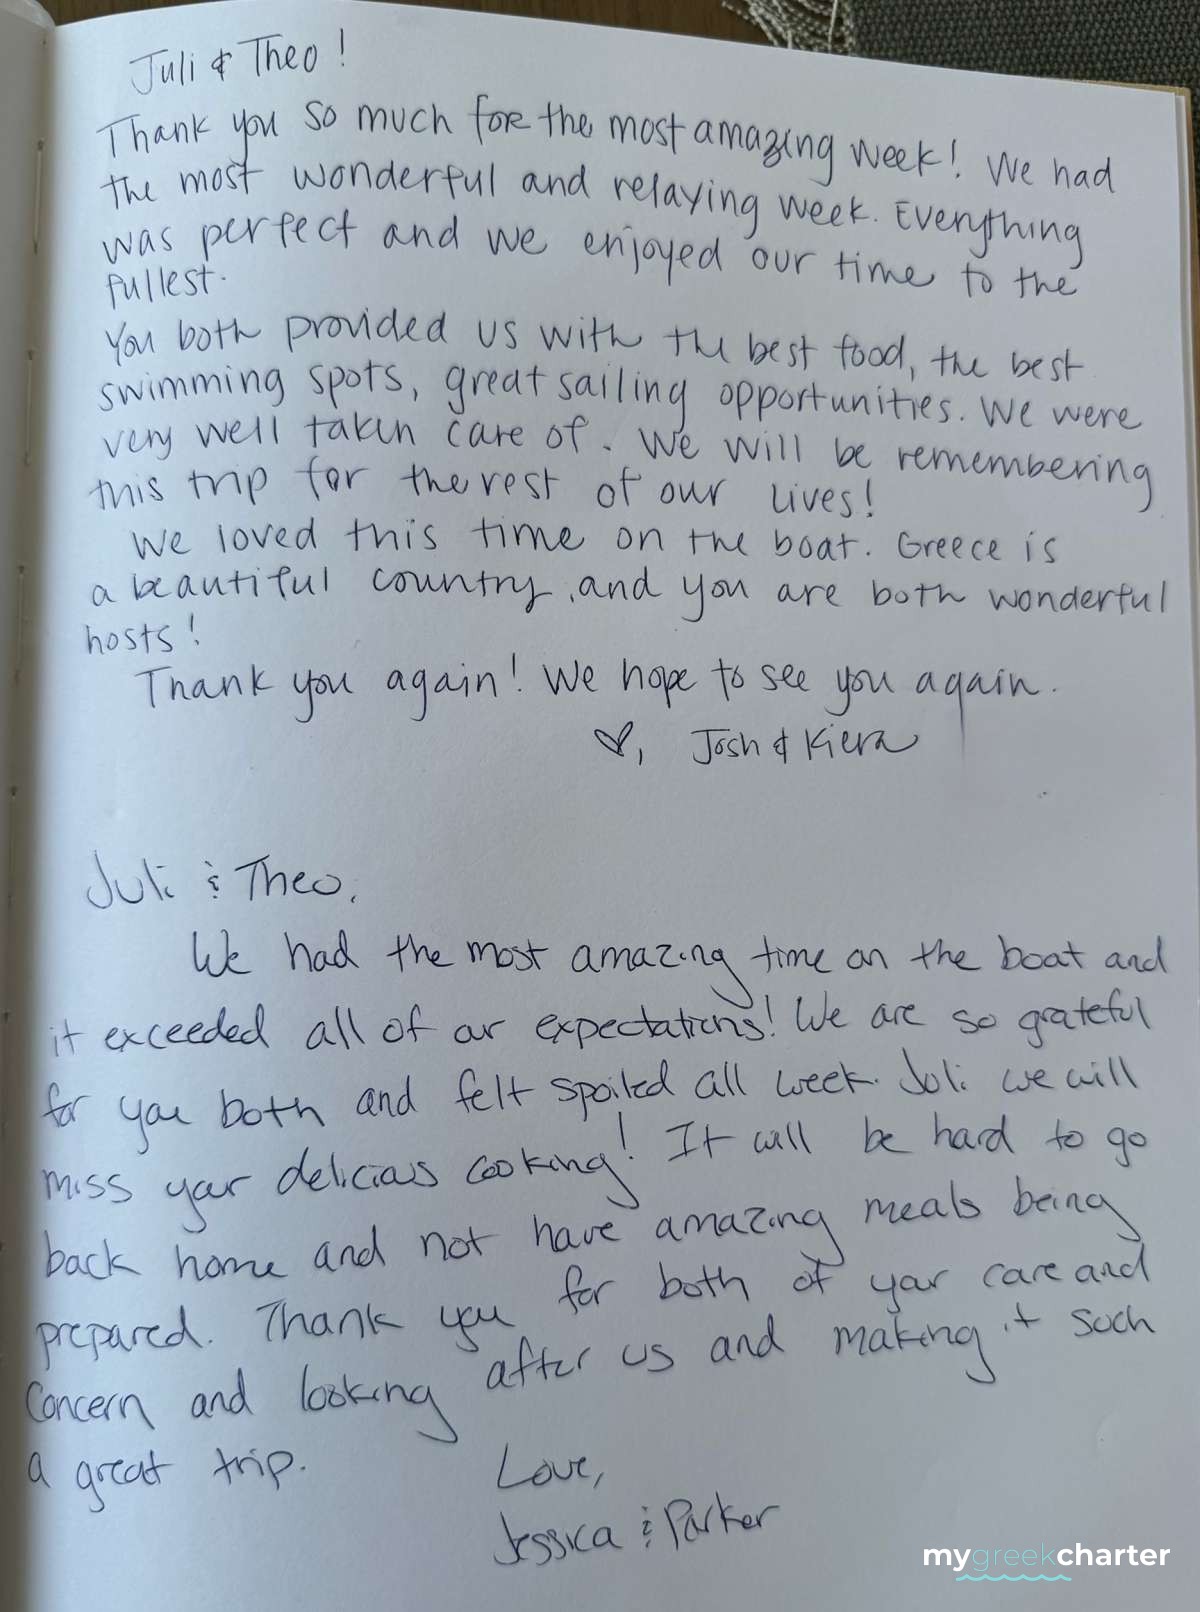 Juli & Theo!
Thank you so much for the most amazing week! We had
the most wonderful and relaxing week. Everything
was perfect and we enjoyed our time to the
fullest.
You both provided us with the best food, the best
swimming spots, great sailing opportunities. We were
very well taken care of. We will be remembering
this trip for the rest of our lives!
We loved this time on the boat. Greece is
a beautiful country, and you are both wonderful
hosts!
Thank you again! We hope to see you again.
♡, Josh & Kiera
Juli & Theo,
We had the most amazing time on the boat and
it exceeded all of our expectations! We are so grateful
for you both and felt spoiled all week. Juli we will
miss your delicious cooking! It will be hard to go
back home and not have amazing meals being
prepared. Thank you for both of your care and
concern and looking after us and making it such
a great trip.
Love,
Jessica & Parker
mygreekcharter